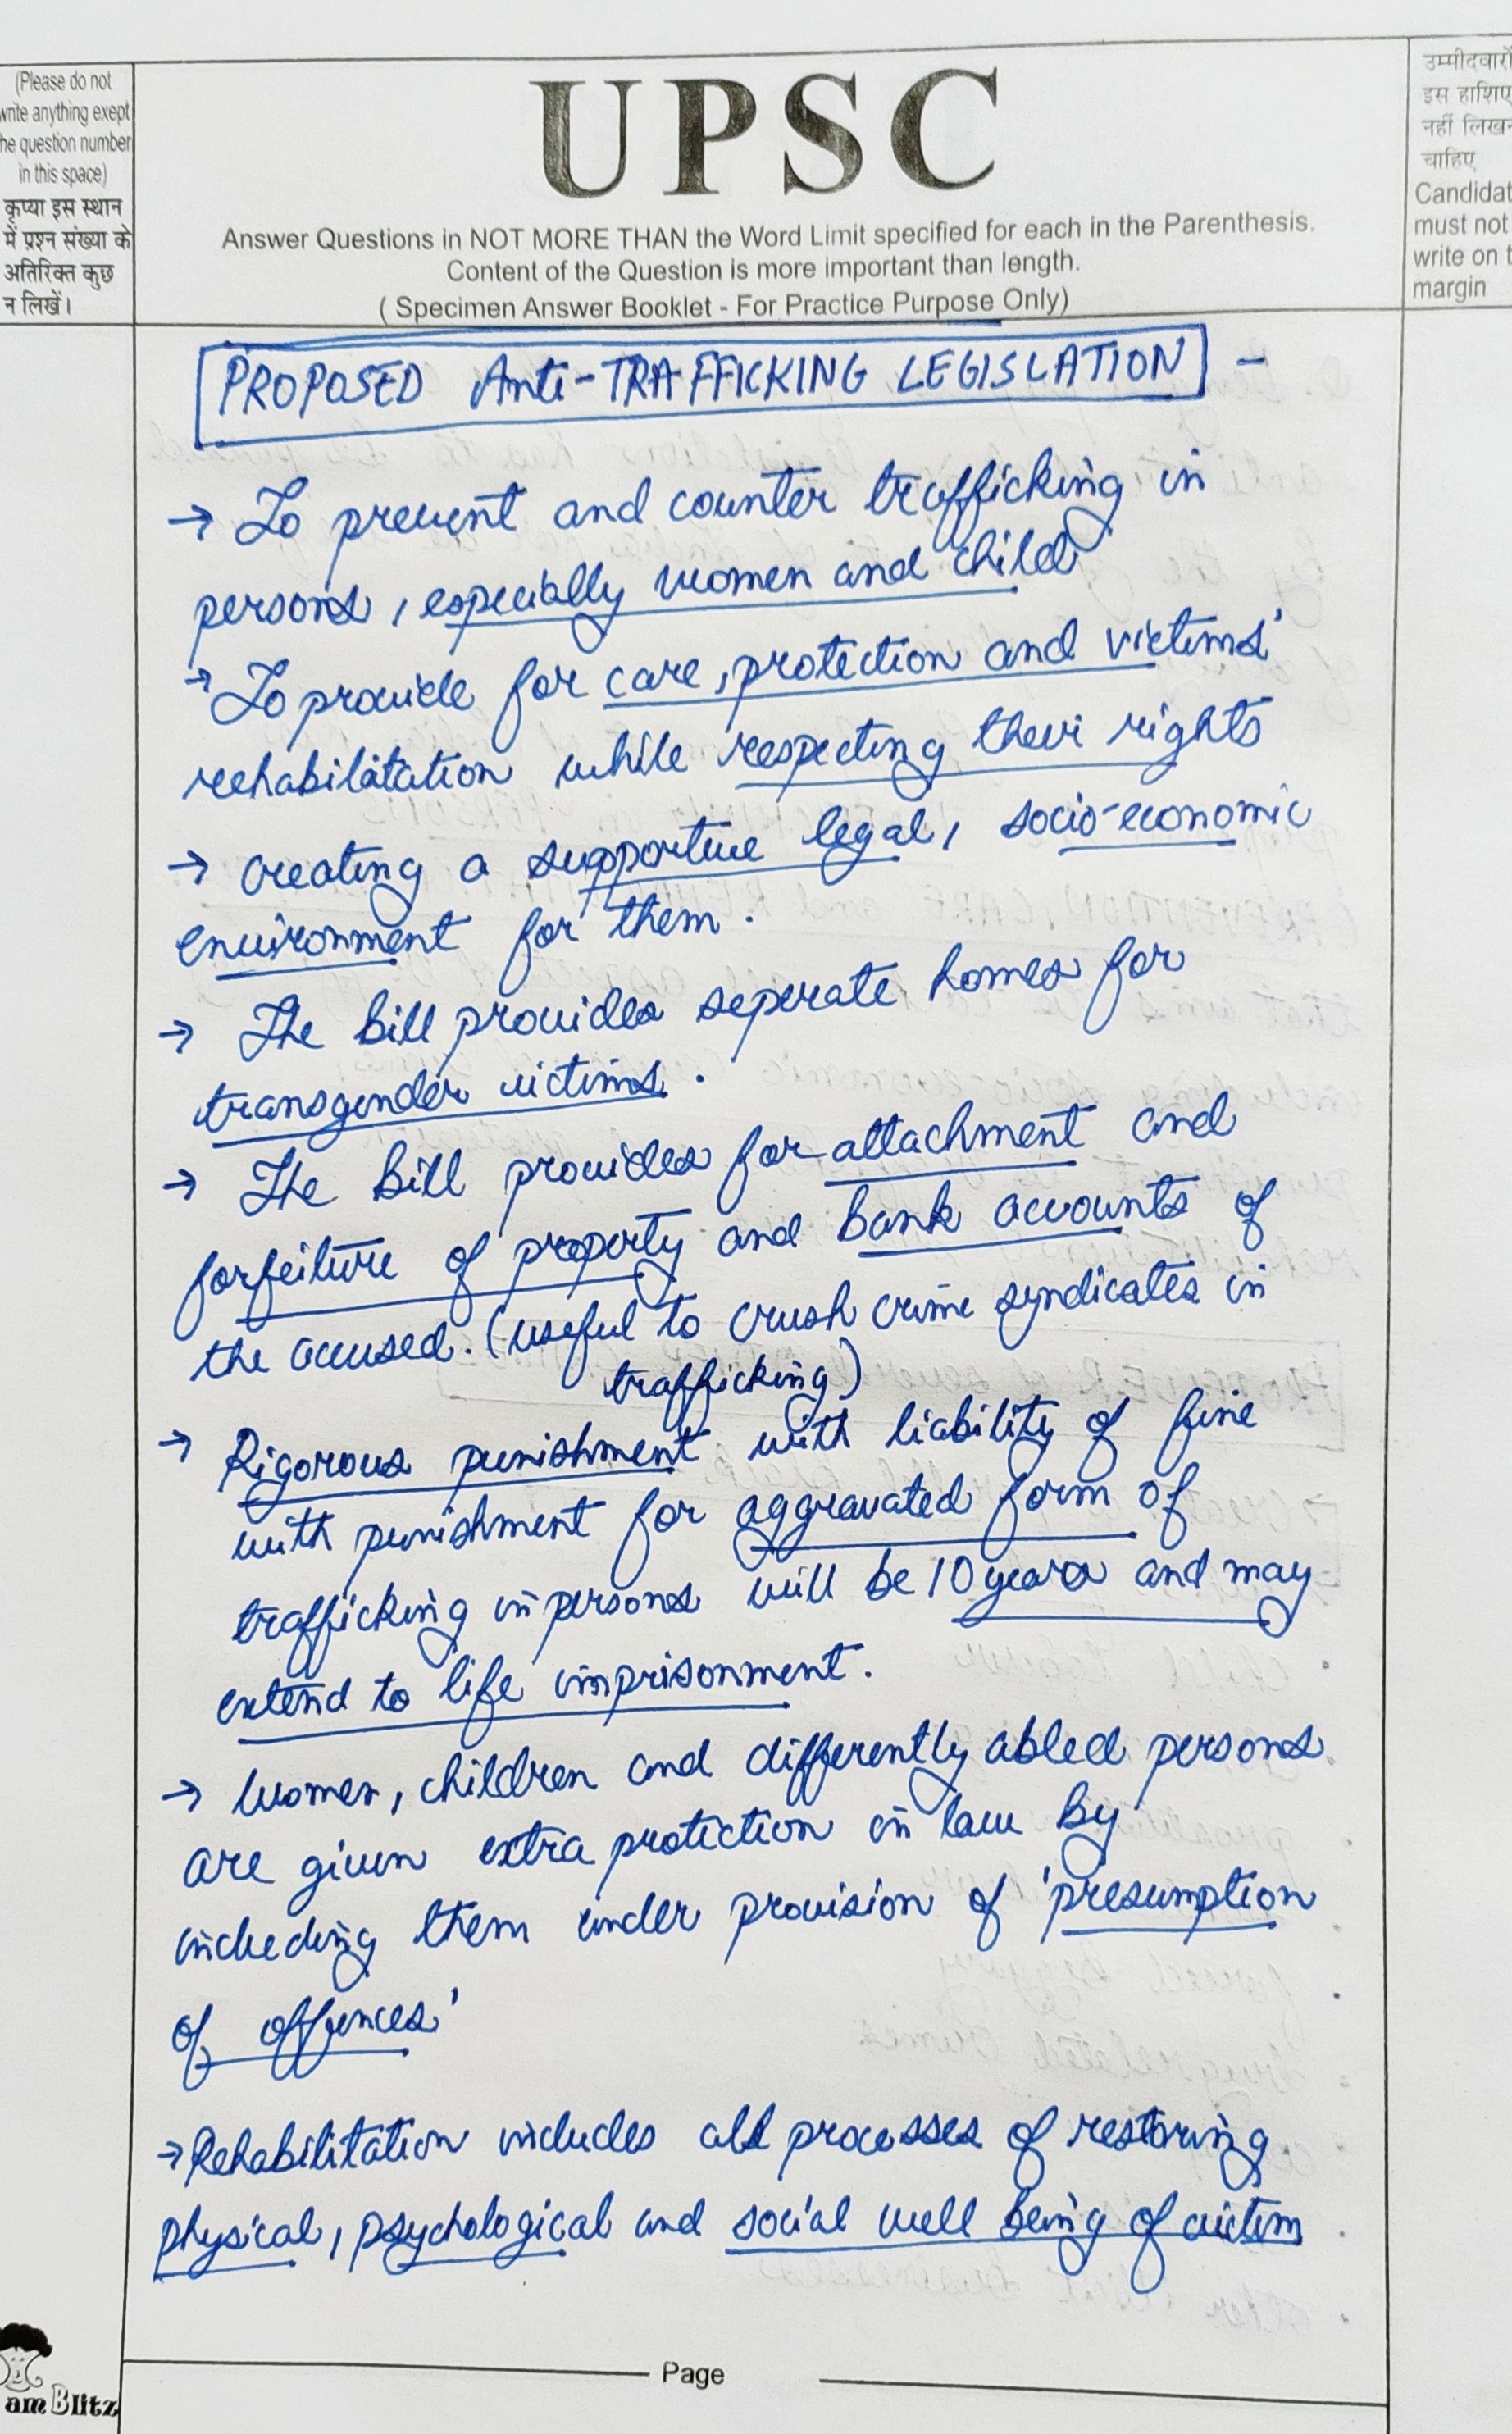 (Please do not
write anything exept
the question number
in this space)
कृप्या इस स्थान
में प्रश्न संख्या के
अतिरिक्त कुछ
न लिखें।
UPSC
Answer Questions in NOT MORE THAN the Word Limit specified for each in the Parenthesis.
Content of the Question is more important than length.
( Specimen Answer Booklet - For Practice Purpose Only)
उम्मीदवारों
इस हाशिए
नहीं लिखन
चाहिए
Candidat
must not
write on t
margin
PROPOSED Anti-TRAFFICKING LEGISLATION -
→ To prevent and counter trafficking in
persons, especially women and child
→ To provide for care, protection and victims'
rehabilitation while respecting their rights
→ creating a supportive legal, socio-economic
environment for them.
→ The bill provides seperate homes for
transgender victims.
→ The bill provides for attachment and
forfeiture of property and bank accounts of
the accused. (useful to crush crime syndicates in
trafficking)
→ Rigorous punishment with liability of fine
with punishment for aggravated form of
trafficking in persons will be 10 years and may
extend to life imprisonment.
→ women, children and differently abled persons
are given extra protection in law by
including them under provision of 'presumption
of offences'
→ Rehabilitation includes all processes of restoring
physical, psychological and social well being of victim
Page
am Blitz